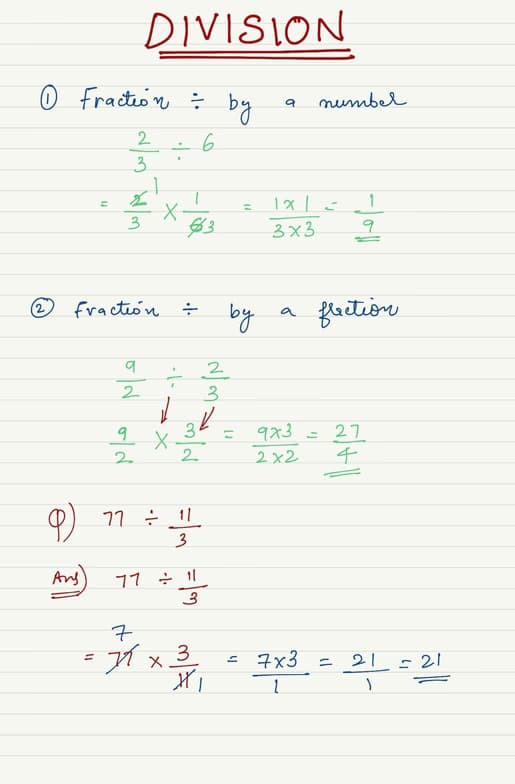 DIVISION
① Fraction ÷ by a number
2/3 ÷ 6
= 2̸ 1/3 × 1/6̸ 3 = 1×1/3×3 = 1/9
② Fraction ÷ by a fraction
9/2 ÷ 2/3
9/2 × 3/2 = 9×3/2×2 = 27/4
Q) 77 ÷ 11/3
Ans) 77 ÷ 11/3
7
= 77 × 3/11 1 = 7×3/1 = 21/1 = 21